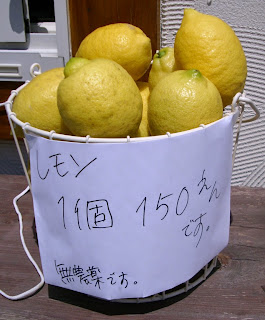 レモン
1個 150えん
です。
無農薬です。